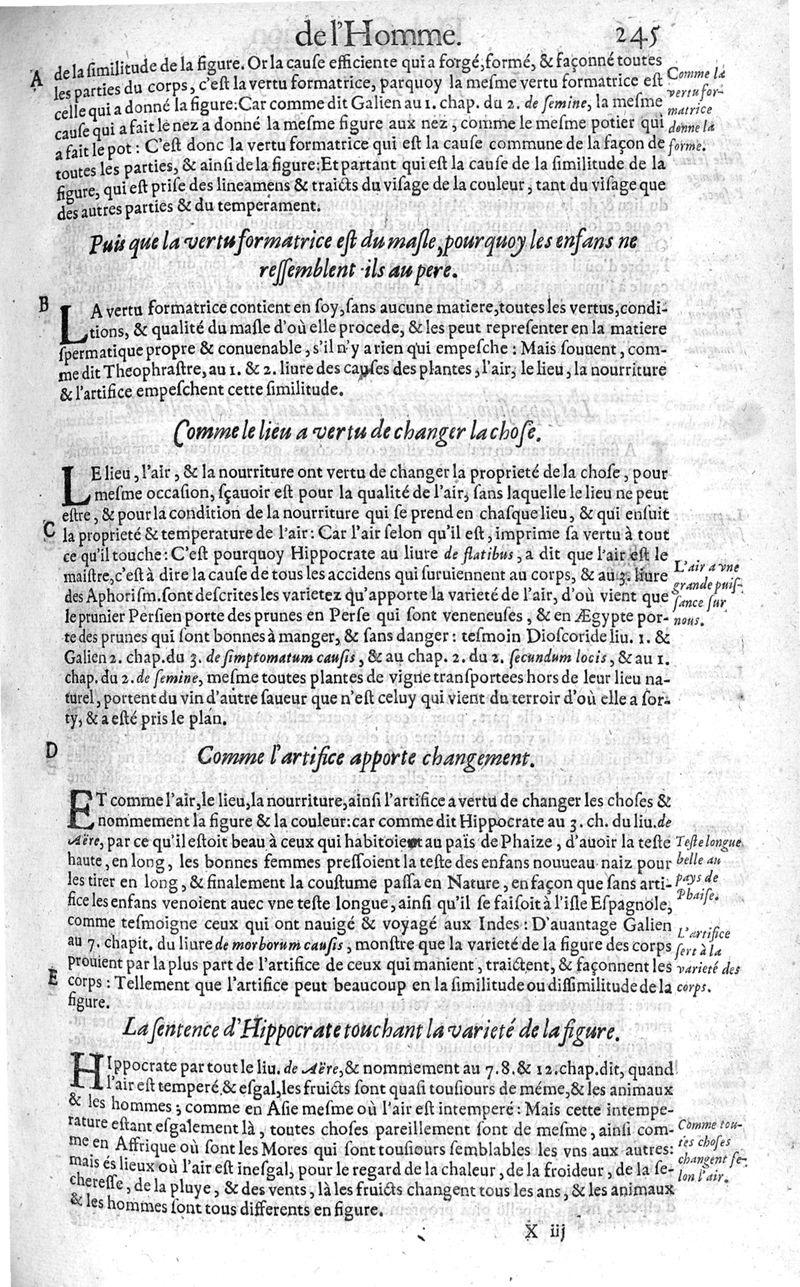 de l'Homme. 245
A de la ſimilitude de la figure. Or la cauſe efficiente qui a forgé, formé, & façonné toutes
les parties du corps, c'eſt la vertu formatrice, parquoy la meſme vertu formatrice eſt
celle qui a donné la figure: Car comme dit Galien au 1. chap. du 2. de ſemine, la meſme
cauſe qui a fait le nez a donné la meſme figure aux nez, comme le meſme potier qui
a fait le pot: C'eſt donc la vertu formatrice qui eſt la cauſe commune de la façon de
toutes les parties, & ainſi de la figure: Et partant qui eſt la cauſe de la ſimilitude de la
figure, qui eſt priſe des lineamens & traicts du viſage de la couleur, tant du viſage que
des autres parties & du temperament.
Comme la
vertu for-
matrice
donne la
forme.
Puis que la vertu formatrice eſt du maſle, pourquoy les enfans ne
reſſemblent ils au pere.
B LA vertu formatrice contient en ſoy, ſans aucune matiere, toutes les vertus, condi-
tions, & qualité du maſle d'où elle procede, & les peut repreſenter en la matiere
ſpermatique propre & conuenable, s'il n'y a rien qui empeſche: Mais ſouuent, com-
me dit Theophraſtre, au 1. & 2. liure des cauſes des plantes, l'air, le lieu, la nourriture
& l'artifice empeſchent cette ſimilitude.
Comme le lieu a vertu de changer la choſe.
LE lieu, l'air, & la nourriture ont vertu de changer la proprieté de la choſe, pour
meſme occaſion, ſçauoir eſt pour la qualité de l'air, ſans laquelle le lieu ne peut
eſtre, & pour la condition de la nourriture qui ſe prend en chaſque lieu, & qui enſuit
C la proprieté & temperature de l'air: Car l'air ſelon qu'il eſt, imprime ſa vertu à tout
ce qu'il touche: C'eſt pourquoy Hippocrate au liure de flatibus, a dit que l'air eſt le
maiſtre, c'eſt à dire la cauſe de tous les accidens qui ſuruiennent au corps, & au 3. liure
des Aphoriſm. ſont deſcrites les varietez qu'apporte la varieté de l'air, d'où vient que
le prunier Perſien porte des prunes en Perſe qui ſont veneneuſes, & en Ægypte por-
te des prunes qui ſont bonnes à manger, & ſans danger: teſmoin Dioſcoride liu. 1. &
Galien 2. chap. du 3. de ſimptomatum cauſis, & au chap. 2. du 2. ſecundum locis, & au 1.
chap. du 2. de ſemine, meſme toutes plantes de vigne tranſportees hors de leur lieu na-
turel, portent du vin d'autre ſaueur que n'eſt celuy qui vient du terroir d'où elle a ſor-
ty, & a eſté pris le plan.
L'air a vne
grande puiſ-
ſance ſur
nous.
D Comme l'artifice apporte changement.
ET comme l'air, le lieu, la nourriture, ainſi l'artifice a vertu de changer les choſes &
nommement la figure & la couleur: car comme dit Hippocrate au 3. ch. du liu. de
Aëre, par ce qu'il eſtoit beau à ceux qui habitoient au païs de Phaize, d'auoir la teſte
haute, en long, les bonnes femmes preſſoient la teſte des enfans nouueau naiz pour
les tirer en long, & finalement la couſtume paſſa en Nature, en façon que ſans arti-
fice les enfans venoient auec vne teſte longue, ainſi qu'il ſe faiſoit à l'iſle Eſpagnole,
comme teſmoigne ceux qui ont nauigé & voyagé aux Indes: D'auantage Galien
au 7. chapit. du liure de morborum cauſis, monſtre que la varieté de la figure des corps
prouient par la plus part de l'artifice de ceux qui manient, traictent, & façonnent les
E corps: Tellement que l'artifice peut beaucoup en la ſimilitude ou diſſimilitude de la
figure.
Teſte longue
belle au
pays de
Phaiſe.
L'artifice
ſert à la
varieté des
corps.
La ſentence d'Hippocrate touchant la varieté de la figure.
HIppocrate par tout le liu. de Aëre, & nommement au 7. 8. & 12. chap. dit, quand
l'air eſt temperé & eſgal, les fruicts ſont quaſi touſiours de méme, & les animaux
& les hommes; comme en Aſie meſme où l'air eſt intemperé: Mais cette intempe-
rature eſtant eſgalement là, toutes choſes pareillement ſont de meſme, ainſi com-
me en Affrique où ſont les Mores qui ſont touſiours ſemblables les vns aux autres:
mais és lieux où l'air eſt ineſgal, pour le regard de la chaleur, de la froideur, de la ſe-
chereſſe, de la pluye, & des vents, là les fruicts changent tous les ans, & les animaux
& les hommes ſont tous differents en figure.
Comme tou-
tes choſes
changent ſe-
lon l'air.
X iij